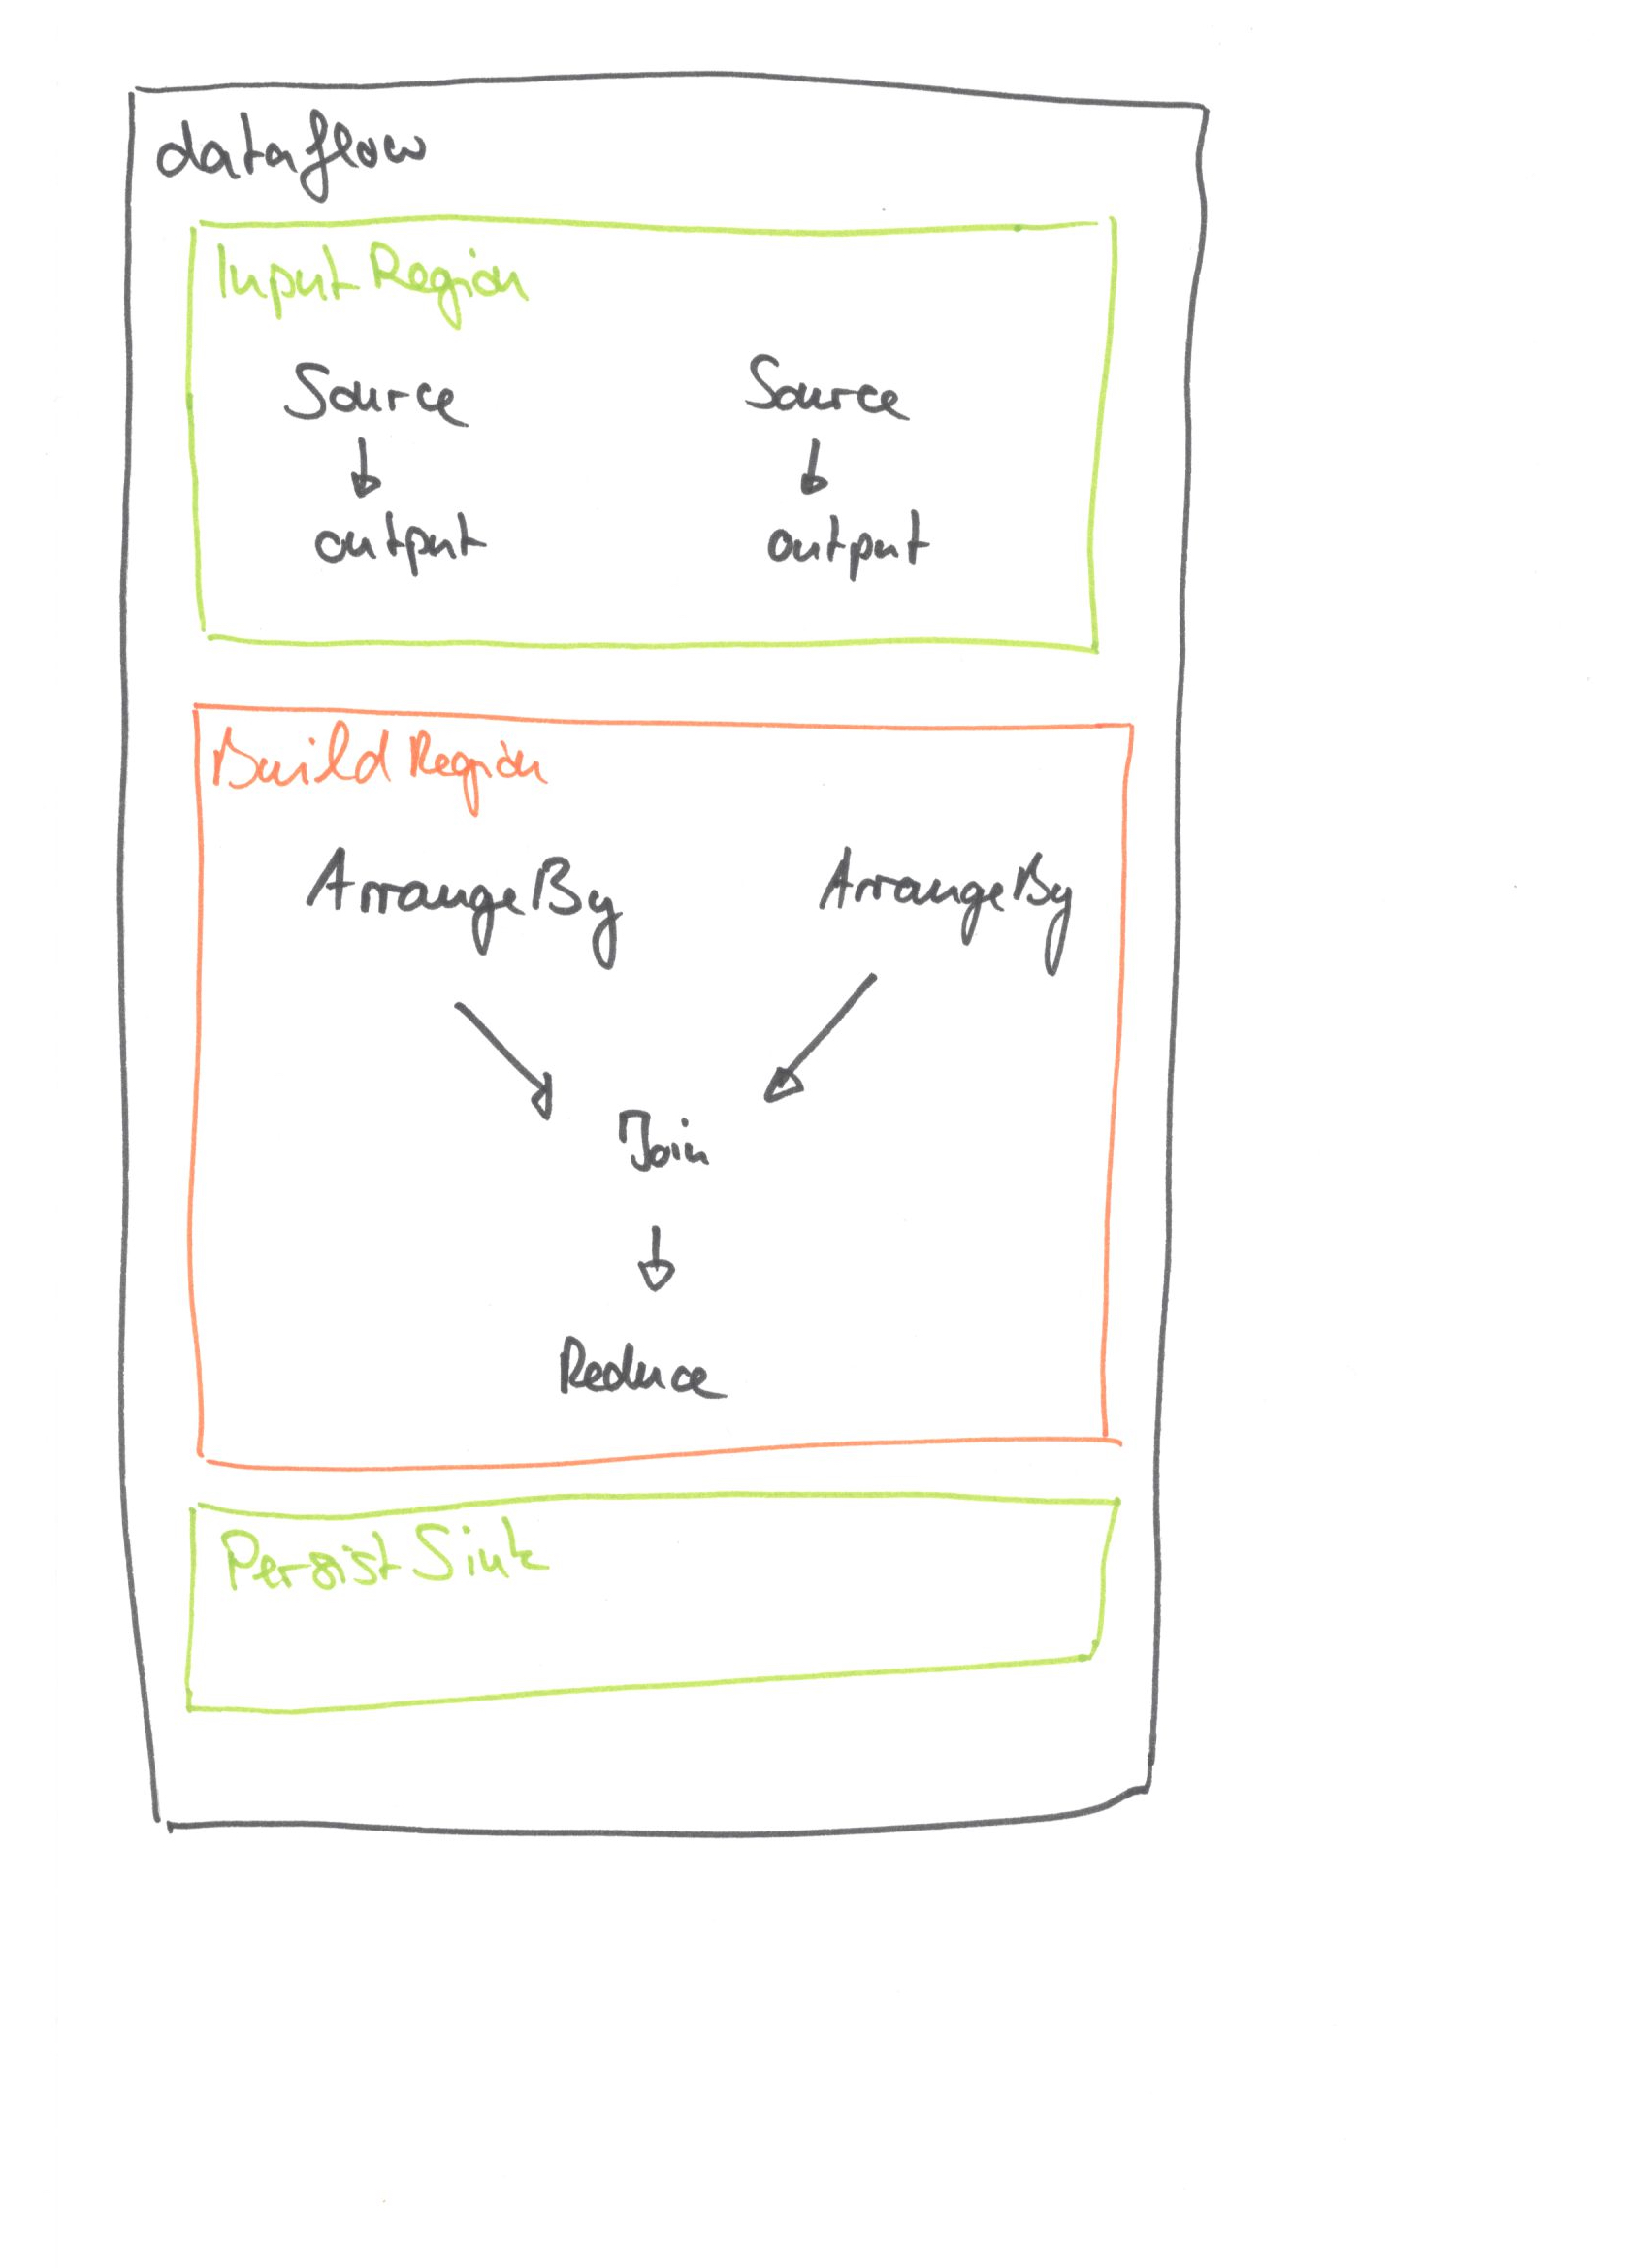 dataflow
Input Region
Source Source
output output
Build Region
ArrangeBy ArrangeBy
Join
Reduce
Persist Sink